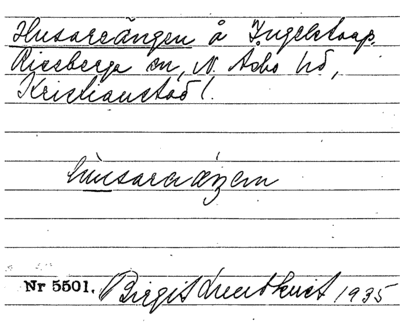 Husareängen å Ingelstorp,
Riseberga sn, N. Åsbo hd,
Kristianstads l.
husaraängen
Nr 5501. Birgit Lundkvist 1935